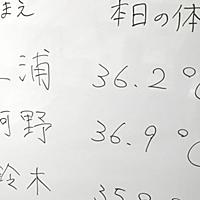 まえ 本日の体
浦 36.2℃
阿野 36.9℃
鈴木 35.9